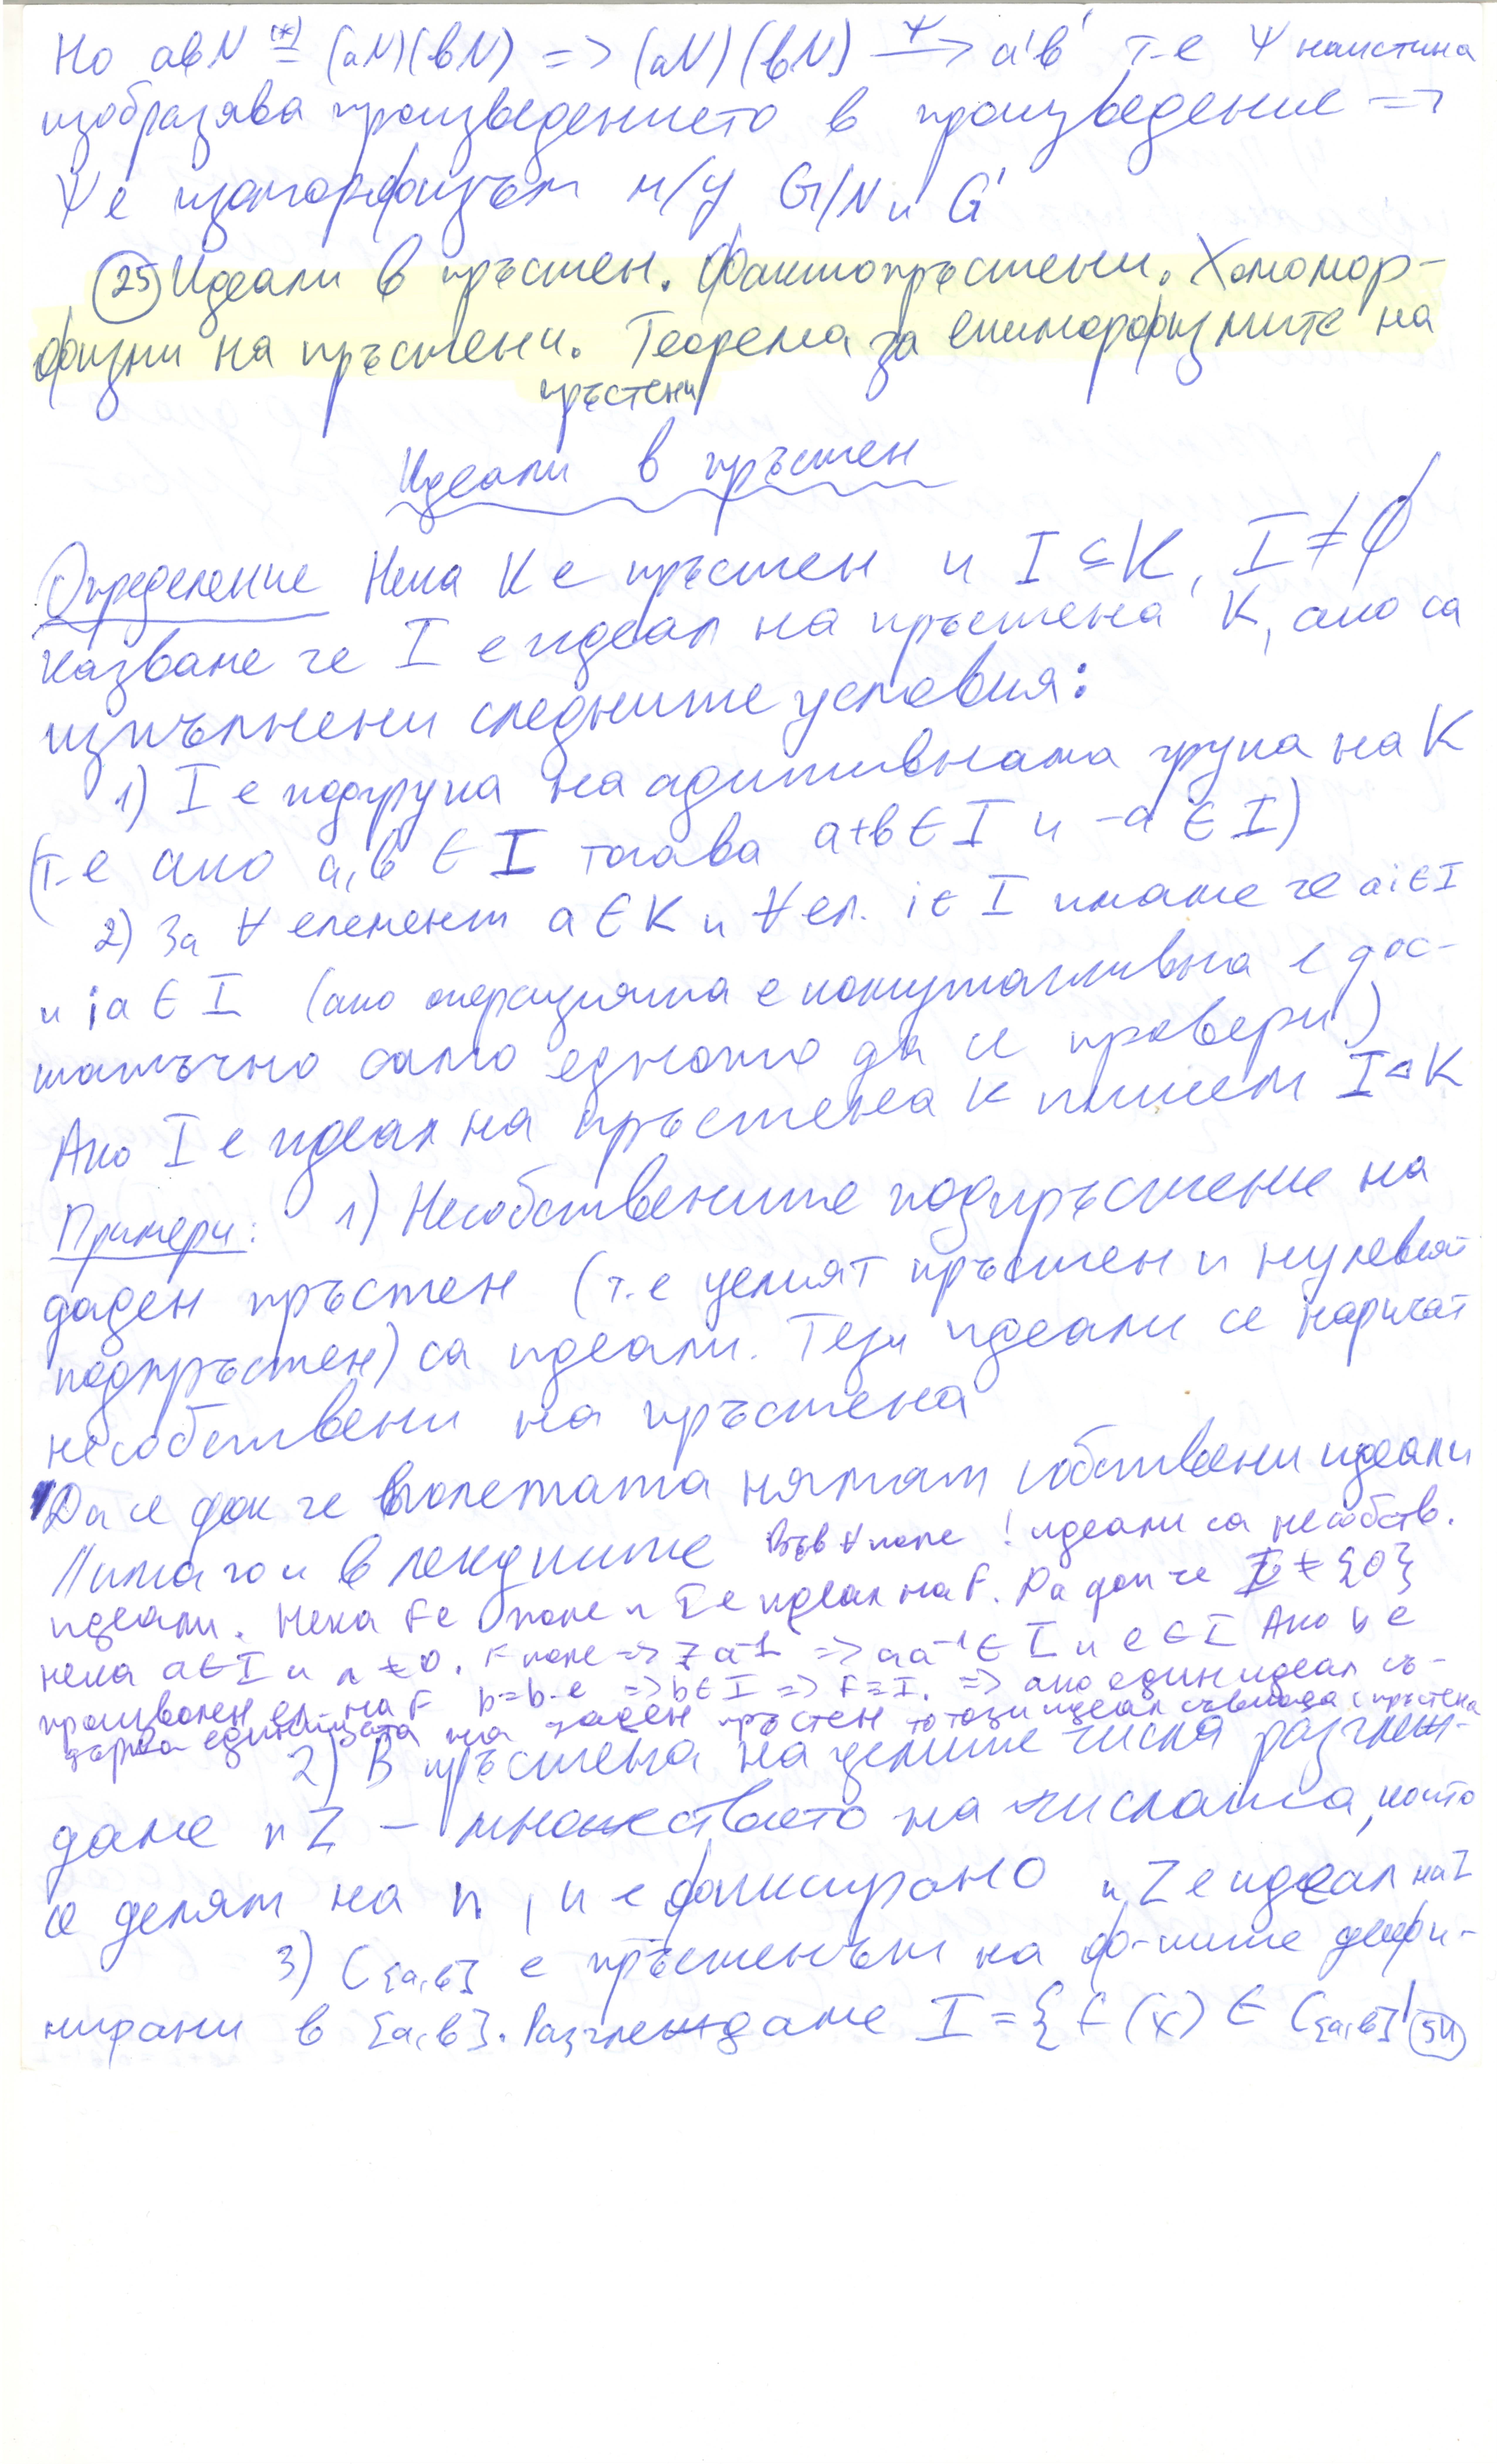 Но abN (*)= (aN)(bN) => (aN)(bN) —Ψ→ a'b' т-е Ψ наистина
изобразява произведението в произведение =>
Ψ е изоморфизъм м/у G/N и G'
(25) Идеали в пръстен. Факторпръстени. Хомомор-
физми на пръстени. Теорема за епиморфизмите на
пръстени
Идеали в пръстен
Определение Нека K е пръстен и I ⊆ K, I ≠ ∅
казваме че I е идеал на пръстена K, ако са
изпълнени следните условия:
1) I е подгрупа на адитивната група на K
(т-е ако a,b ∈ I тогава a+b ∈ I и -a ∈ I)
2) За ∀ елемент a ∈ K и ∀ ел. i ∈ I имаме че ai ∈ I
и ia ∈ I (ако операцията е комутативна е дос-
татъчно само едното да се провери)
Ако I е идеал на пръстена K пишем I ⊲ K
Примери: 1) Несобствените подпръстени на
даден пръстен (т.е целият пръстен и нулевият
подпръстен) са идеали. Тези идеали се наричат
несобствени на пръстена
Да се док че полетата нямат собствени идеали
Има го и в лекциите Във ∀ поле ! идеали са несобств.
идеали. Нека F е поле и I е идеал на F. Да доп че I ≠ {0}
нека a ∈ I и a ≠ 0. F поле => ∃ a⁻¹ => aa⁻¹ ∈ I и e ∈ I Ако b е
произволен ел. на F b=b.e => b ∈ I => F ≡ I. => ако един идеал съ-
държа единицата на даден пръстен то този идеал съвпада с пръстена
2) В пръстена на целите числа разглеж-
даме nZ – множеството на числата, които
се делят на n, n е фиксирано nZ е идеал на Z
3) C[a,b] е пръстенът на ф-ите дефи-
нирани в [a,b]. Разглеждаме I = {f(x) ∈ C[a,b] |